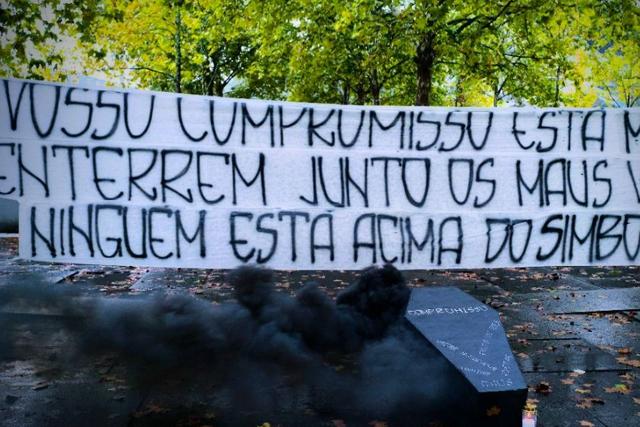 VOSSO COMPROMISSO ESTÁ M
ENTERREM JUNTO OS MAUS V
NINGUÉM ESTÁ ACIMA DO SIMBO
COMPROMISSO